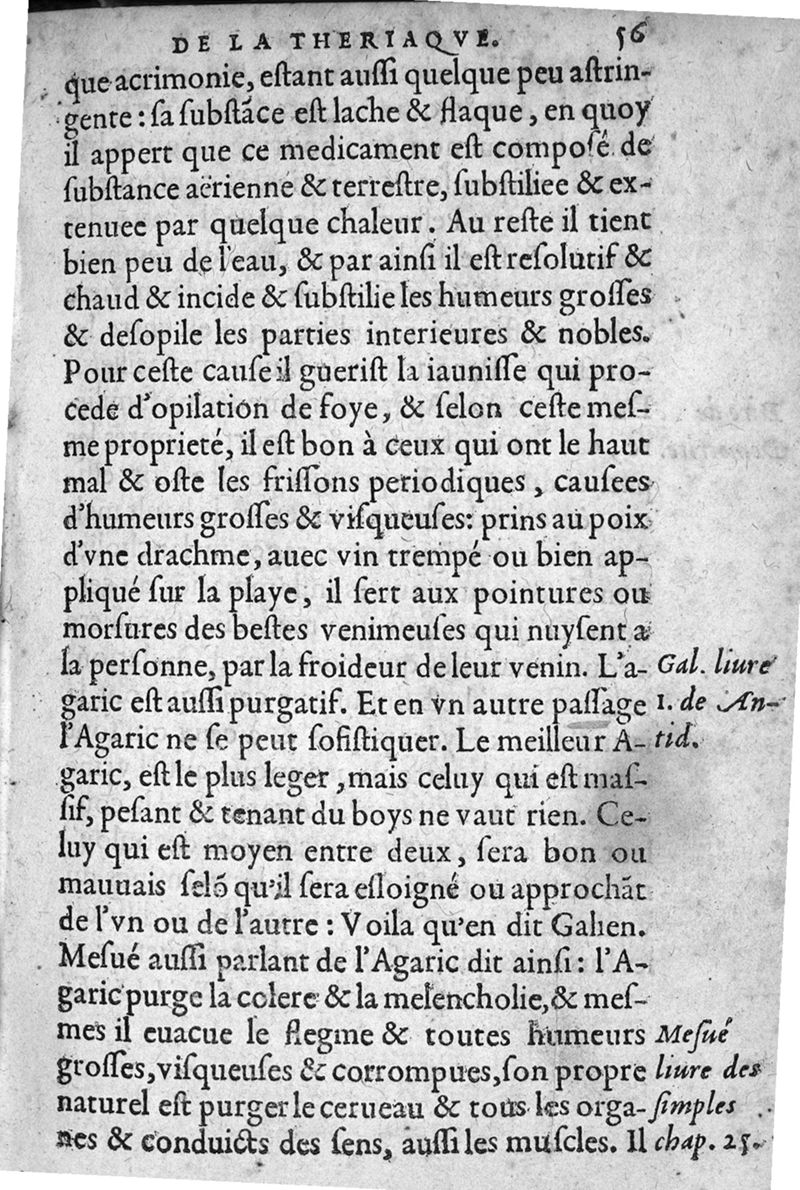 DE LA THERIAQVE. 56
que acrimonie, eſtant auſſi quelque peu aſtrin-
gente : ſa ſubſtāce eſt lache & flaque, en quoy
il appert que ce medicament eſt compoſé de
ſubſtance aërienne & terreſtre, ſubſtiliee & ex-
tenuee par quelque chaleur. Au reſte il tient
bien peu de l'eau, & par ainſi il eſt reſolutif &
chaud & incide & ſubſtilie les humeurs groſſes
& deſopile les parties interieures & nobles.
Pour ceſte cauſe il gueriſt la iauniſſe qui pro-
cede d'opilation de foye, & ſelon ceſte meſ-
me proprieté, il eſt bon à ceux qui ont le haut
mal & oſte les friſſons periodiques, cauſees
d'humeurs groſſes & viſqueuſes: prins au poix
d'vne drachme, auec vin trempé ou bien ap-
pliqué ſur la playe, il ſert aux pointures ou
morſures des beſtes venimeuſes qui nuyſent a
la perſonne, par la froideur de leur venin. L'a- Gal. liure
garic eſt auſſi purgatif. Et en vn autre paſſage 1. de An-
l'Agaric ne ſe peut ſofiſtiquer. Le meilleur A- tid.
garic, eſt le plus leger, mais celuy qui eſt maſ-
ſif, peſant & tenant du boys ne vaut rien. Ce-
luy qui eſt moyen entre deux, ſera bon ou
mauuais ſelō qu'il ſera eſloigné ou approchāt
de l'vn ou de l'autre : Voila qu'en dit Galien.
Meſué auſſi parlant de l'Agaric dit ainſi: l'A-
garic purge la colere & la melencholie, & meſ-
mes il euacue le flegme & toutes humeurs Meſué
groſſes, viſqueuſes & corrompues, ſon propre liure des
naturel eſt purger le cerueau & tous les orga- ſimples
nes & conduicts des ſens, auſſi les muſcles. Il chap. 25.